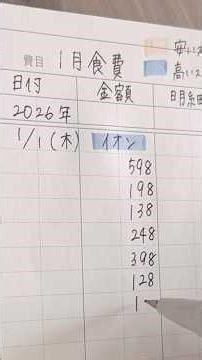 費目 1月食費
安い
高い
日付 金額 明細
2026年
1/1(木) イオン
598
198
138
248
398
128
1